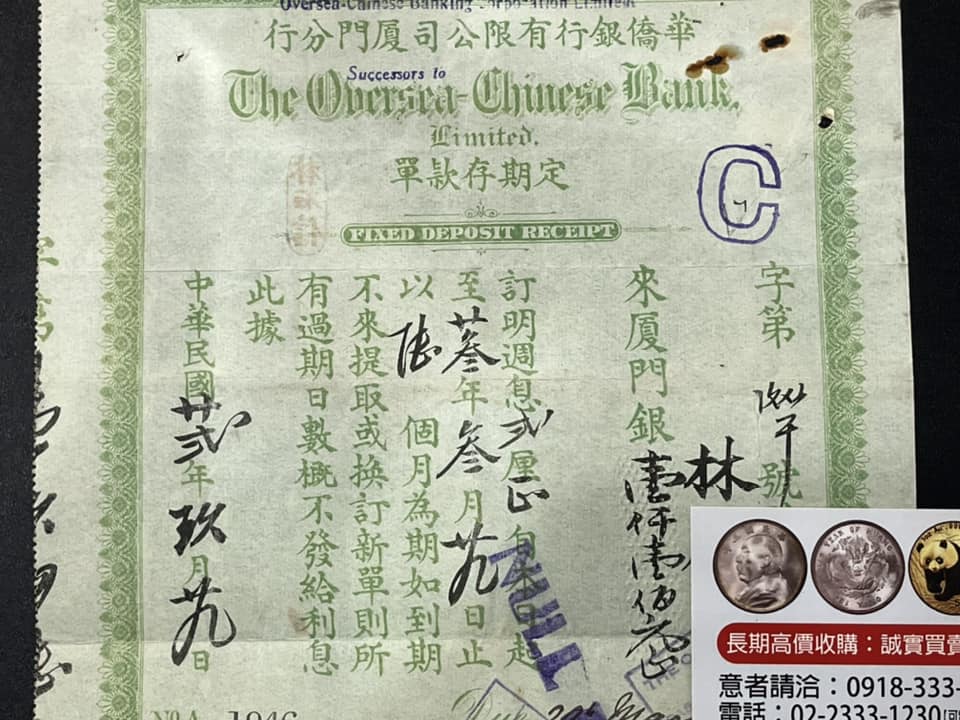 Oversea-Chinese Banking Corporation Limited.
華僑銀行有限公司廈門分行
Successors to
The Oversea-Chinese Bank,
Limited.
定期存款單
FIXED DEPOSIT RECEIPT
C
字第號
林
來廈門銀壹仟壹佰元正
訂明週息弍厘正自本日起
至廿叁年叁月廿九日止
以陸個月為期如到期
不來提取或換訂新單則所
有過期日數概不發給利息
此據
中華民國廿弍年玖月廿九日
NULL
No A 1946
Due 29th Mar
長期高價收購：誠實買賣
意者請洽：0918-333-
電話：02-2333-1230